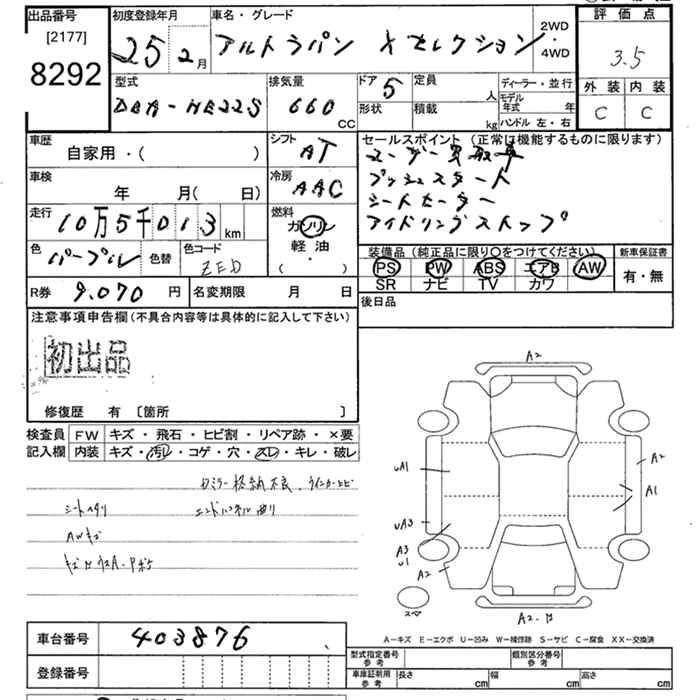 出品番号
[2177]
8292
初度登録年月
25 2月
車名・グレード
アルトラパン Xセレクション
2WD
・
4WD
評価点
3.5
外装 内装
C C
型式
DBA-HE22S
排気量
660
CC
ドア 5
形状
定員
人
積載
kg
ディーラー・並行
モデル
年式 年
ハンドル 左・右
車歴
自家用・( )
シフト
AT
セールスポイント (正常に機能するものに限ります)
プッシュスタート
シートヒーター
アイドリングストップ
車検
年 月( 日)
冷房
AAC
走行
10万5千013km
燃料
ガソリン
軽油
・
( )
色
パープル
色替
色コード
ZED
装備品 (純正品に限り○をつけてください)
PS PW ABS エアB AW
SR ナビ TV カワ
新車保証書
有・無
R券 9.070 円
名変期限 月 日
後日品
注意事項申告欄 (不具合内容等は具体的に記入して下さい)
初出品
修復歴 有 〔箇所 〕
検査員
記入欄
FW キズ・飛石・ヒビ割・リペア跡・×要
内装 キズ・汚レ・コゲ・穴・スレ・キレ・破レ
カミラー格納不良
シートヘタリ
エンドパネル曲り
AWキズ
A2
uA1
A2
A1
uA3
A3
u1
A2
スペ
A2
A-キズ E-エクボ U-凹み W-補修跡 S-サビ C-腐食 XX-交換済
車台番号 403876
登録番号
型式指定番号
参考
類別区分番号
参考
車庫証明用
参考
長さ cm 幅 cm 高さ cm